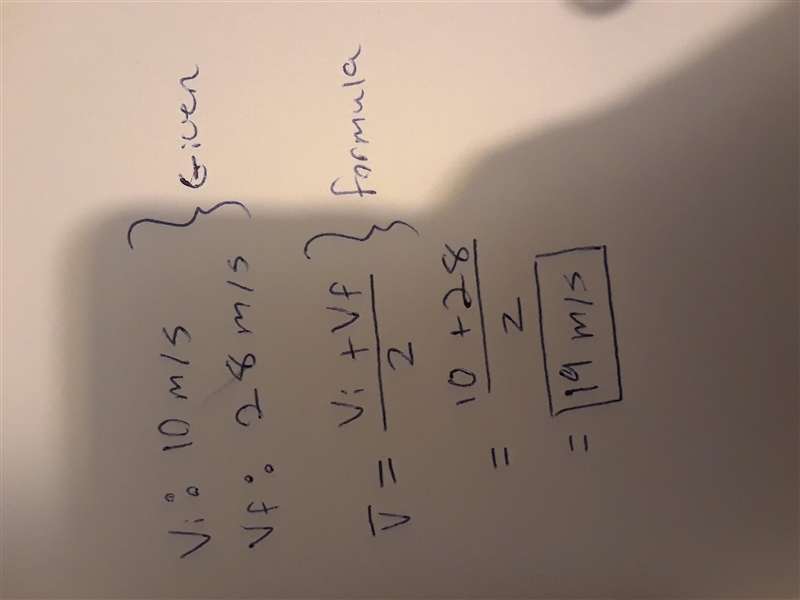 Vi: 10 m/s } Given
Vf: 28 m/s
V̄ = Vi + Vf / 2 } formula
= 10 + 28 / 2
= 19 m/s